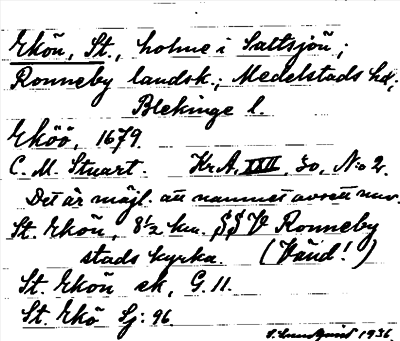 Ekön, St., holme i Saltsjön;
Ronneby landsk.; Medelstads hd,
Blekinge l.
Eköö, 1679.
C. M. Stuart. Kr A, XXII, 30, N:o 2.
Det är möjl. att namnet avsett nuv.
St. Ekön, 8 1/2 km. SSV Ronneby
stads kyrka. (Vänd!)
St. Ekön ek, G. 11.
St. Ekö Sj: 96.
S. Lundquist 1936.